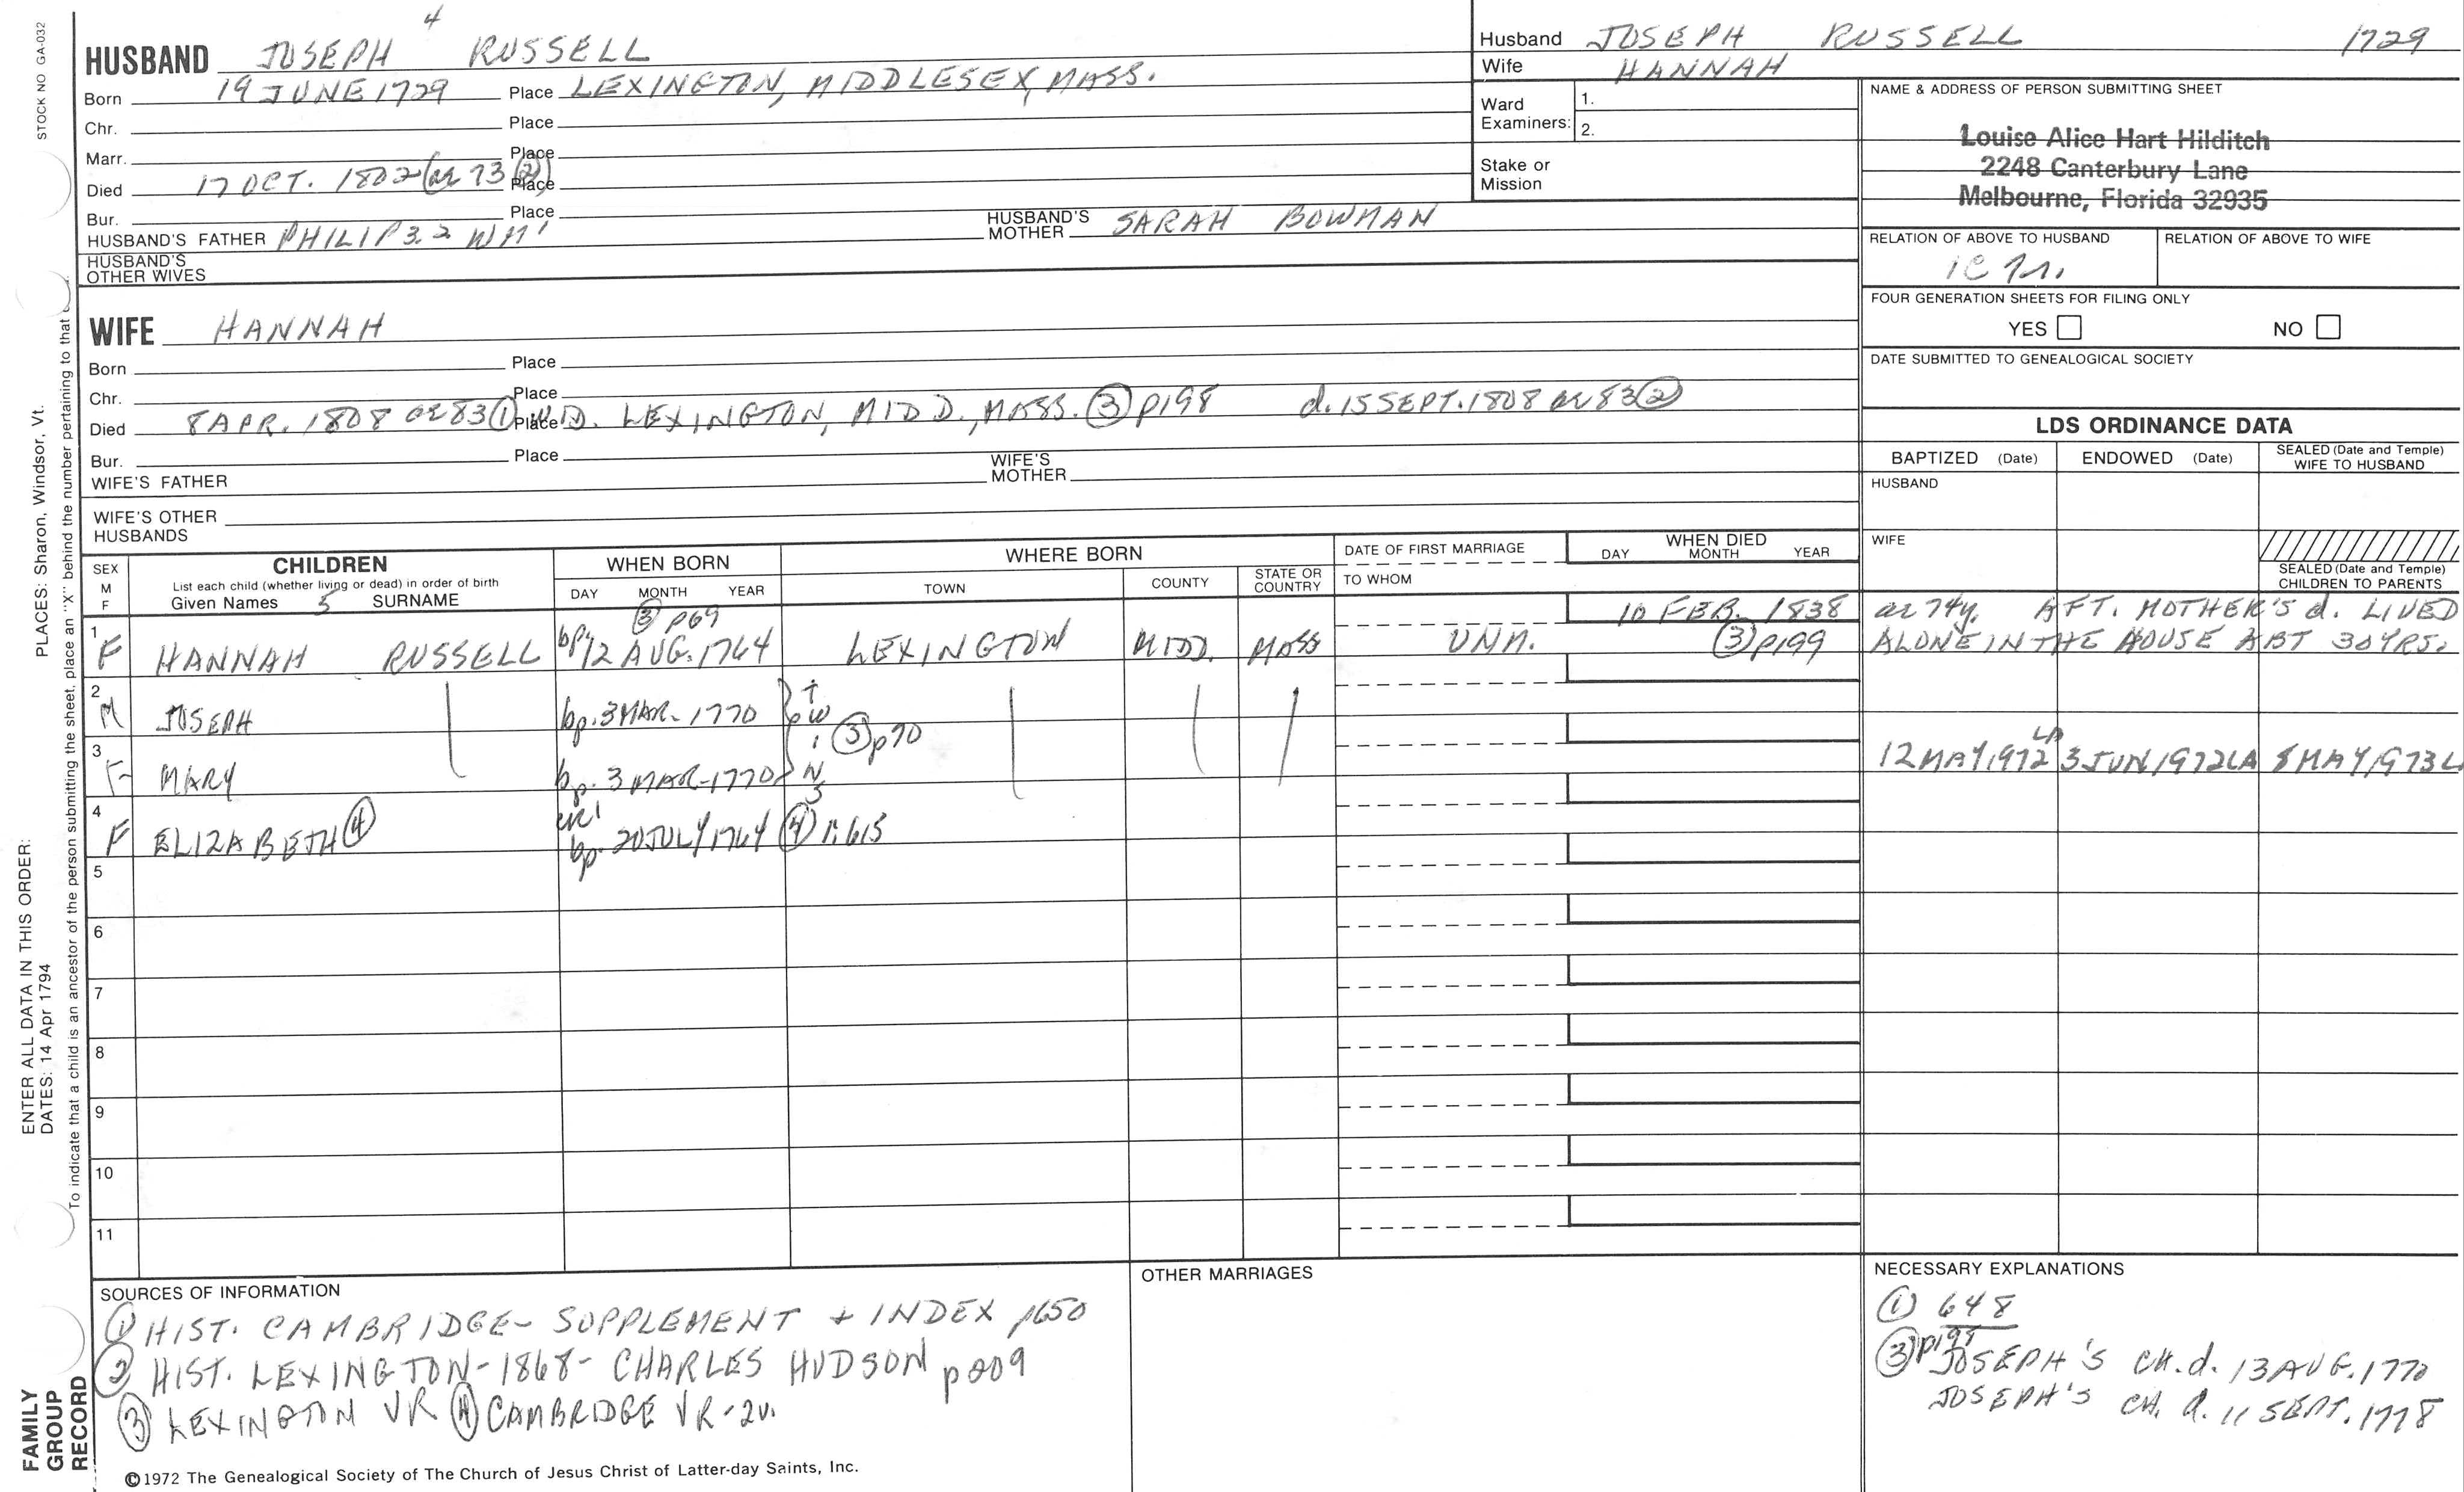 4
HUSBAND JOSEPH RUSSELL
Born 19 JUNE 1729 Place LEXINGTON, MIDDLESEX, MASS.
Chr. Place
Marr. Place
Died 17 OCT. 1802 (ae 73 ②) Place
Bur. Place
HUSBAND'S FATHER PHILIP 3. 2 WM 1 HUSBAND'S MOTHER SARAH BOWMAN
HUSBAND'S
OTHER WIVES
WIFE HANNAH
Born Place
Chr. Place
Died 8 APR. 1808 ae 83 ① Place WID. LEXINGTON, MIDD., MASS. ③ p198 d. 15 SEPT. 1808 ae 83 ②
Bur. Place
WIFE'S FATHER WIFE'S MOTHER
WIFE'S OTHER
HUSBANDS
Husband JOSEPH RUSSELL 1729
Wife HANNAH
Ward
Examiners: 1.
2.
Stake or
Mission
NAME & ADDRESS OF PERSON SUBMITTING SHEET
Louise Alice Hart Hilditch
2248 Canterbury Lane
Melbourne, Florida 32935
RELATION OF ABOVE TO HUSBAND RELATION OF ABOVE TO WIFE
FOUR GENERATION SHEETS FOR FILING ONLY
YES NO
DATE SUBMITTED TO GENEALOGICAL SOCIETY
LDS ORDINANCE DATA
BAPTIZED (Date) ENDOWED (Date) SEALED (Date and Temple) WIFE TO HUSBAND
HUSBAND
WIFE
SEALED (Date and Temple)
CHILDREN TO PARENTS
SEX
M
F
CHILDREN
List each child (whether living or dead) in order of birth
Given Names 5 SURNAME
WHEN BORN
DAY MONTH YEAR
WHERE BORN
TOWN COUNTY STATE OR COUNTRY
DATE OF FIRST MARRIAGE
TO WHOM
WHEN DIED
DAY MONTH YEAR
③ p69 10 FEB. 1838 ae 74y. AFT. MOTHER'S d. LIVED
1 F HANNAH RUSSELL bp. 12 AUG. 1764 LEXINGTON MIDD. MASS UNM. ③ p199 ALONE IN THE HOUSE ABT 30 YRS.
2 M JOSEPH bp. 3 MAR. 1770 TWINS ③ p70
3 F MARY bp. 3 MAR. 1770 12 MAY 1972 LA 3 JUN 1972 LA 8 MAY 1973 L
4 F ELIZABETH ④ bp. 20 JULY 1764 ④ 1:615
5
6
7
8
9
10
11
SOURCES OF INFORMATION
① HIST. CAMBRIDGE - SUPPLEMENT + INDEX p650
② HIST. LEXINGTON - 1868 - CHARLES HUDSON p209
③ LEXINGTON VR ④ CAMBRIDGE VR - 2v.
OTHER MARRIAGES
NECESSARY EXPLANATIONS
① 648
③ p198
JOSEPH'S CH. d. 13 AUG. 1770
JOSEPH'S CH. d. 11 SEPT. 1778
©1972 The Genealogical Society of The Church of Jesus Christ of Latter-day Saints, Inc.
STOCK NO GA-032
PLACES: Sharon, Windsor, Vt.
To indicate that a child is an ancestor of the person submitting the sheet, place an "X" behind the number pertaining to that
ENTER ALL DATA IN THIS ORDER:
DATES: 14 Apr 1794
FAMILY
GROUP
RECORD